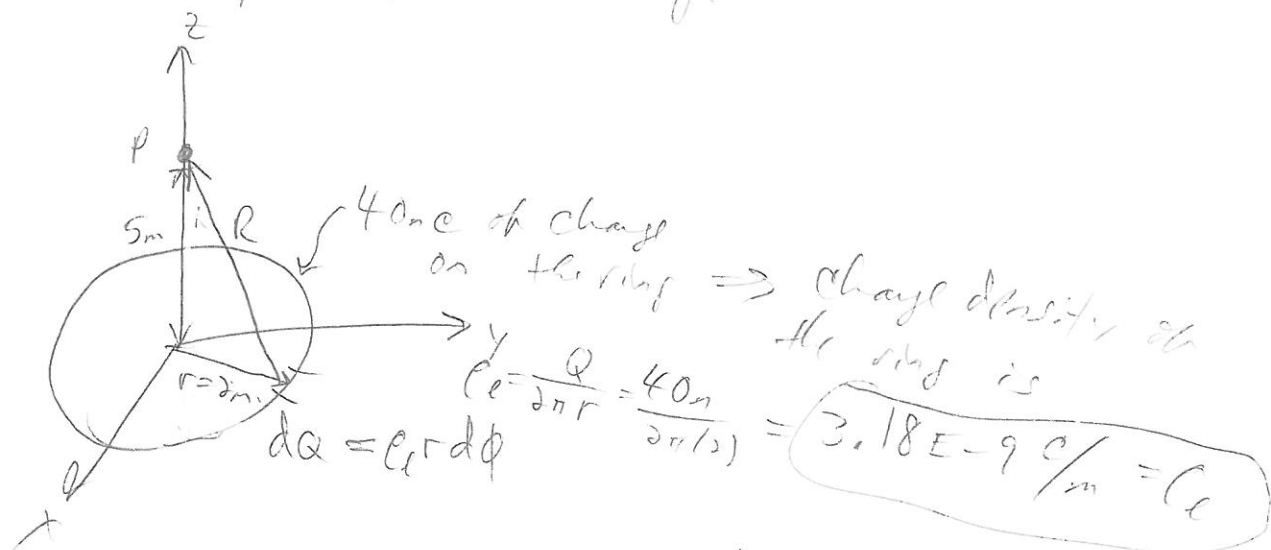 Z
P
5m R
40nC of charge
on the ring ⇒ Charge density on
the ring is
y
r=2m
ρℓ = Q/2πr = 40n/2π(2) = 3.18E-9 C/m = ρℓ
dQ = ρℓ r dϕ
X